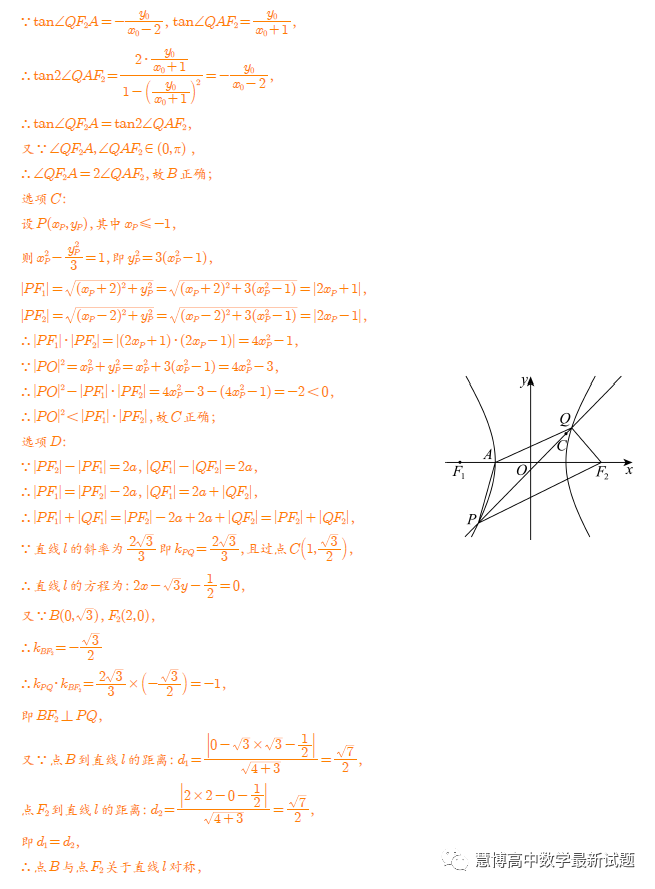 ∵tan∠QF₂A=-y₀/(x₀-2), tan∠QAF₂=y₀/(x₀+1),
∴tan2∠QAF₂=(2·y₀/(x₀+1))/(1-(y₀/(x₀+1))²)=-y₀/(x₀-2),
∴tan∠QF₂A=tan2∠QAF₂,
又∵∠QF₂A,∠QAF₂∈(0,π),
∴∠QF₂A=2∠QAF₂,故B正确;
选项C:
设P(x_P,y_P),其中x_P≤-1,
则x_P²-y_P²/3=1,即y_P²=3(x_P²-1),
|PF₁|=√((x_P+2)²+y_P²)=√((x_P+2)²+3(x_P²-1))=|2x_P+1|,
|PF₂|=√((x_P-2)²+y_P²)=√((x_P-2)²+3(x_P²-1))=|2x_P-1|,
∴|PF₁|·|PF₂|=|(2x_P+1)·(2x_P-1)|=4x_P²-1,
∵|PO|²=x_P²+y_P²=x_P²+3(x_P²-1)=4x_P²-3,
∴|PO|²-|PF₁|·|PF₂|=4x_P²-3-(4x_P²-1)=-2<0,
∴|PO|²<|PF₁|·|PF₂|,故C正确;
选项D:
∵|PF₂|-|PF₁|=2a,|QF₁|-|QF₂|=2a,
∴|PF₁|=|PF₂|-2a,|QF₁|=2a+|QF₂|,
∴|PF₁|+|QF₁|=|PF₂|-2a+2a+|QF₂|=|PF₂|+|QF₂|,
∵直线l的斜率为2√3/3即k_PQ=2√3/3,且过点C(1,√3/2),
∴直线l的方程为:2x-√3y-1/2=0,
又∵B(0,√3),F₂(2,0),
∴k_BF₂=-√3/2
∴k_PQ·k_BF₂=2√3/3×(-√3/2)=-1,
即BF₂⊥PQ,
又∵点B到直线l的距离:d₁=|0-√3×√3-1/2|/√(4+3)=√7/2,
点F₂到直线l的距离:d₂=|2×2-0-1/2|/√(4+3)=√7/2,
即d₁=d₂,
∴点B与点F₂关于直线l对称,
y
Q
C
A
F₁
O
F₂
x
P
慧博高中数学最新试题